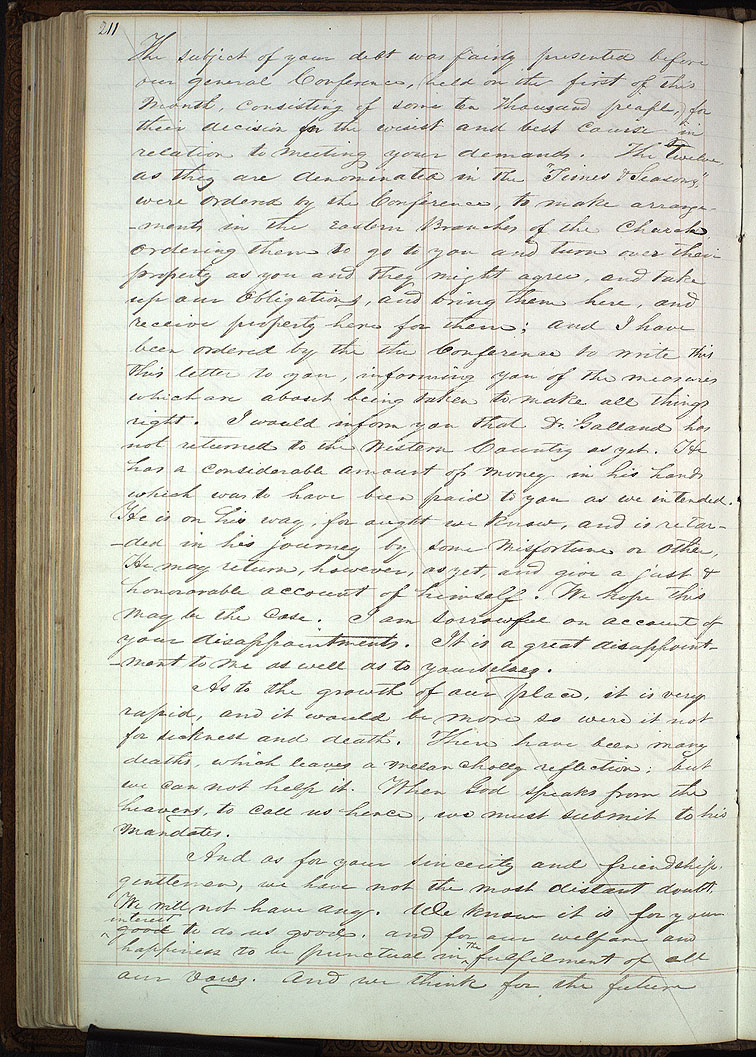 211
The subject of your debt was fairly presented before
our general Conference, held on the first of this
Month, consisting of some ten thousand people, for
their decision for the wisest and best course in
relation to meeting your demands. The Twelve,
as they are denominated in the "Times & Seasons,"
were ordered by the Conference, to make arrange-
-ments in the Eastern Branches of the Church
ordering them to go to you and turn over their
property as you and they might agree, and take
up our obligations, and bring them here, and
receive property here for them; and I have
been ordered by the the Conference to write this
this letter to you, informing you of the measures
which are about being taken to make all things
right. I would inform you that Dr. Galland has
not returned to the Western Country as yet. He
has a considerable amount of money in his hands
which was to have been paid to you as we intended.
He is on his way, for aught we know, and is retar-
-ded in his journey by some misfortune or other,
He may return, however, as yet, and give a just &
honorarable account of himself. We hope this
may be the case. I am sorrowful on account of
your disappointments. It is a great disappoint-
-ment to me as well as to yourselves.
As to the growth of our place, it is very
rapid, and it would be more so were it not
for sickness and death. There have been many
deaths, which leaves a melancholly reflection; but
we can not help it. When God speaks from the
heavens, to call us hence, we must submit to his
mandates.
And as for your sincerity and friendship,
gentlemen, we have not the most distant doubt.
We will not have any. We know it is for your
interest
^ good to do us good, and for our welfare and
happiness to be punctual in ^the fulfilment of all
our vows. And we think for the future